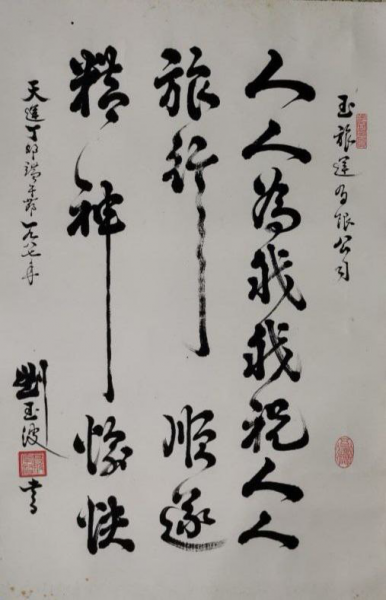 玉旅運有限公司
人人為我我祝人人
旅行順遂
精神愉快
天運丁卯端午節一九八七年
劉玉波書